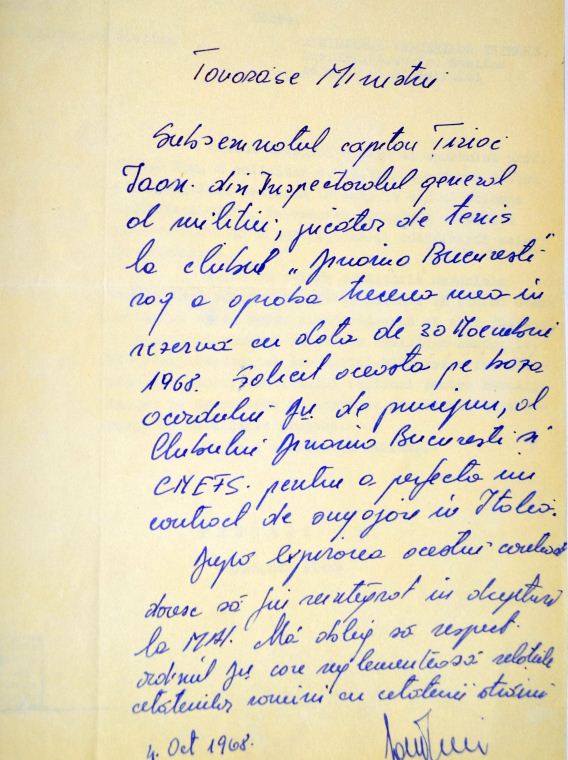 Tovarase Ministru
Subsemnatul capitan Tiriac
Ioan. din Inspectoratul general
al militiei, jucător de tenis
la clubul „Dinamo Bucuresti"
rog a aproba trecerea mea in
rezervă cu data de 30 Noembrie
1968. Solicit aceasta pe baza
acordului Dv. de principiu, al
Clubului Dinamo Bucuresti si
CNEFS. pentru a perfecta un
contract de angajare in Italia.
După expirarea acestui contract
doresc să fiu reintegrat in drepturi
la MAI. Mă oblig să respect
ordinul Dv care reglementează relatiile
cetatenilor romini cu cetatenii străini
4. Oct 1968.